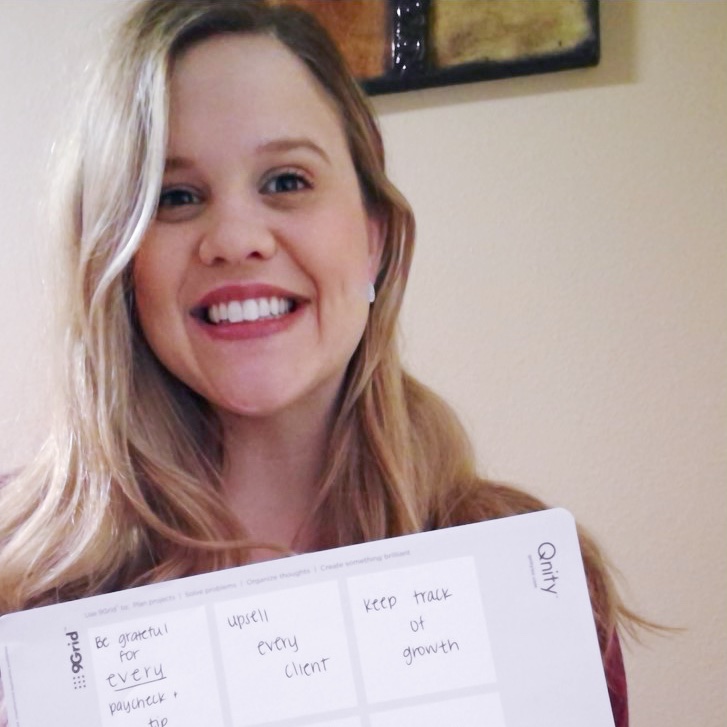 Use 9Grid® to: Plan projects | Solve problems | Organize thoughts | Create something brilliant
Qnity
9Grid
Be grateful
for
every
paycheck +
tip
upsell
every
client
keep track
of
growth